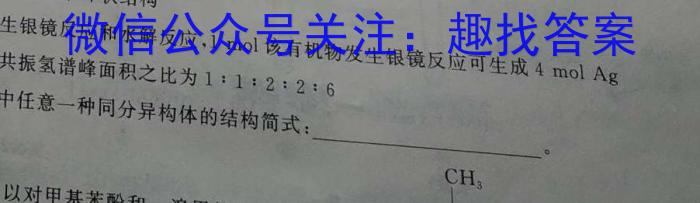 微信公众号关注：趣找答案
生银镜反应和水解反应，1 mol 该有机物发生银镜反应可生成 4 mol Ag
共振氢谱峰面积之比为 1∶1∶2∶2∶6
中任意一种同分异构体的结构简式：。
CH₃
以对甲基苯酚和